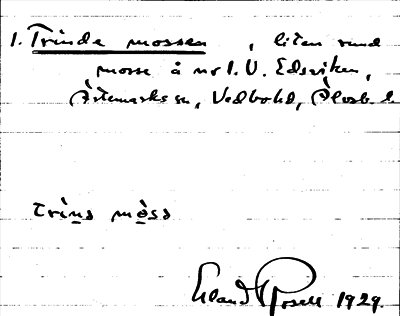 1. Trinde mossen, liten rund
mosse å nr 1. V. Edsviken,
Årtemarks sn, Vedbohd, Älvsb. l.
trìnd mòsa
Erland Rosell 1929.